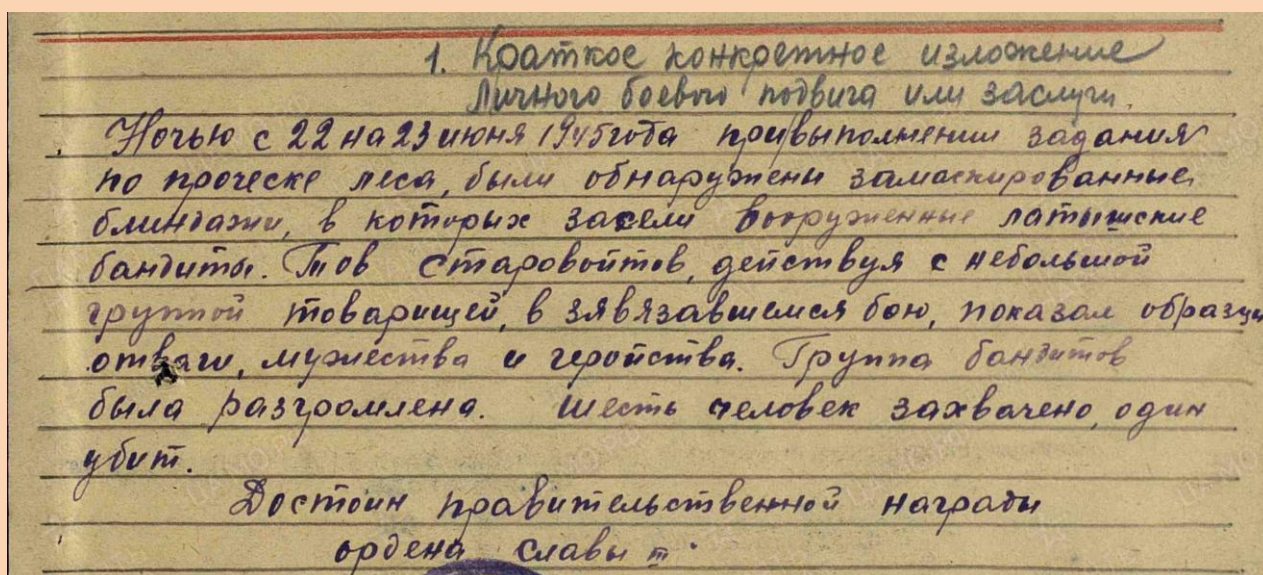 1. Краткое конкретное изложение
личного боевого подвига или заслуги.
Ночью с 22 на 23 июня 1945 года при выполнении задания
по проческе леса, были обнаружены замаскированные
блиндажи, в которых засели вооруженные латышские
бандиты. Тов Старовойтов, действуя с небольшой
группой товарищей, в зявязавшемся бою, показал образцы
отваги, мужества и геройства. Группа бандитов
была разгромлена. Шесть человек захвачено, один
убит.
Достоин правительственной награды
ордена славы